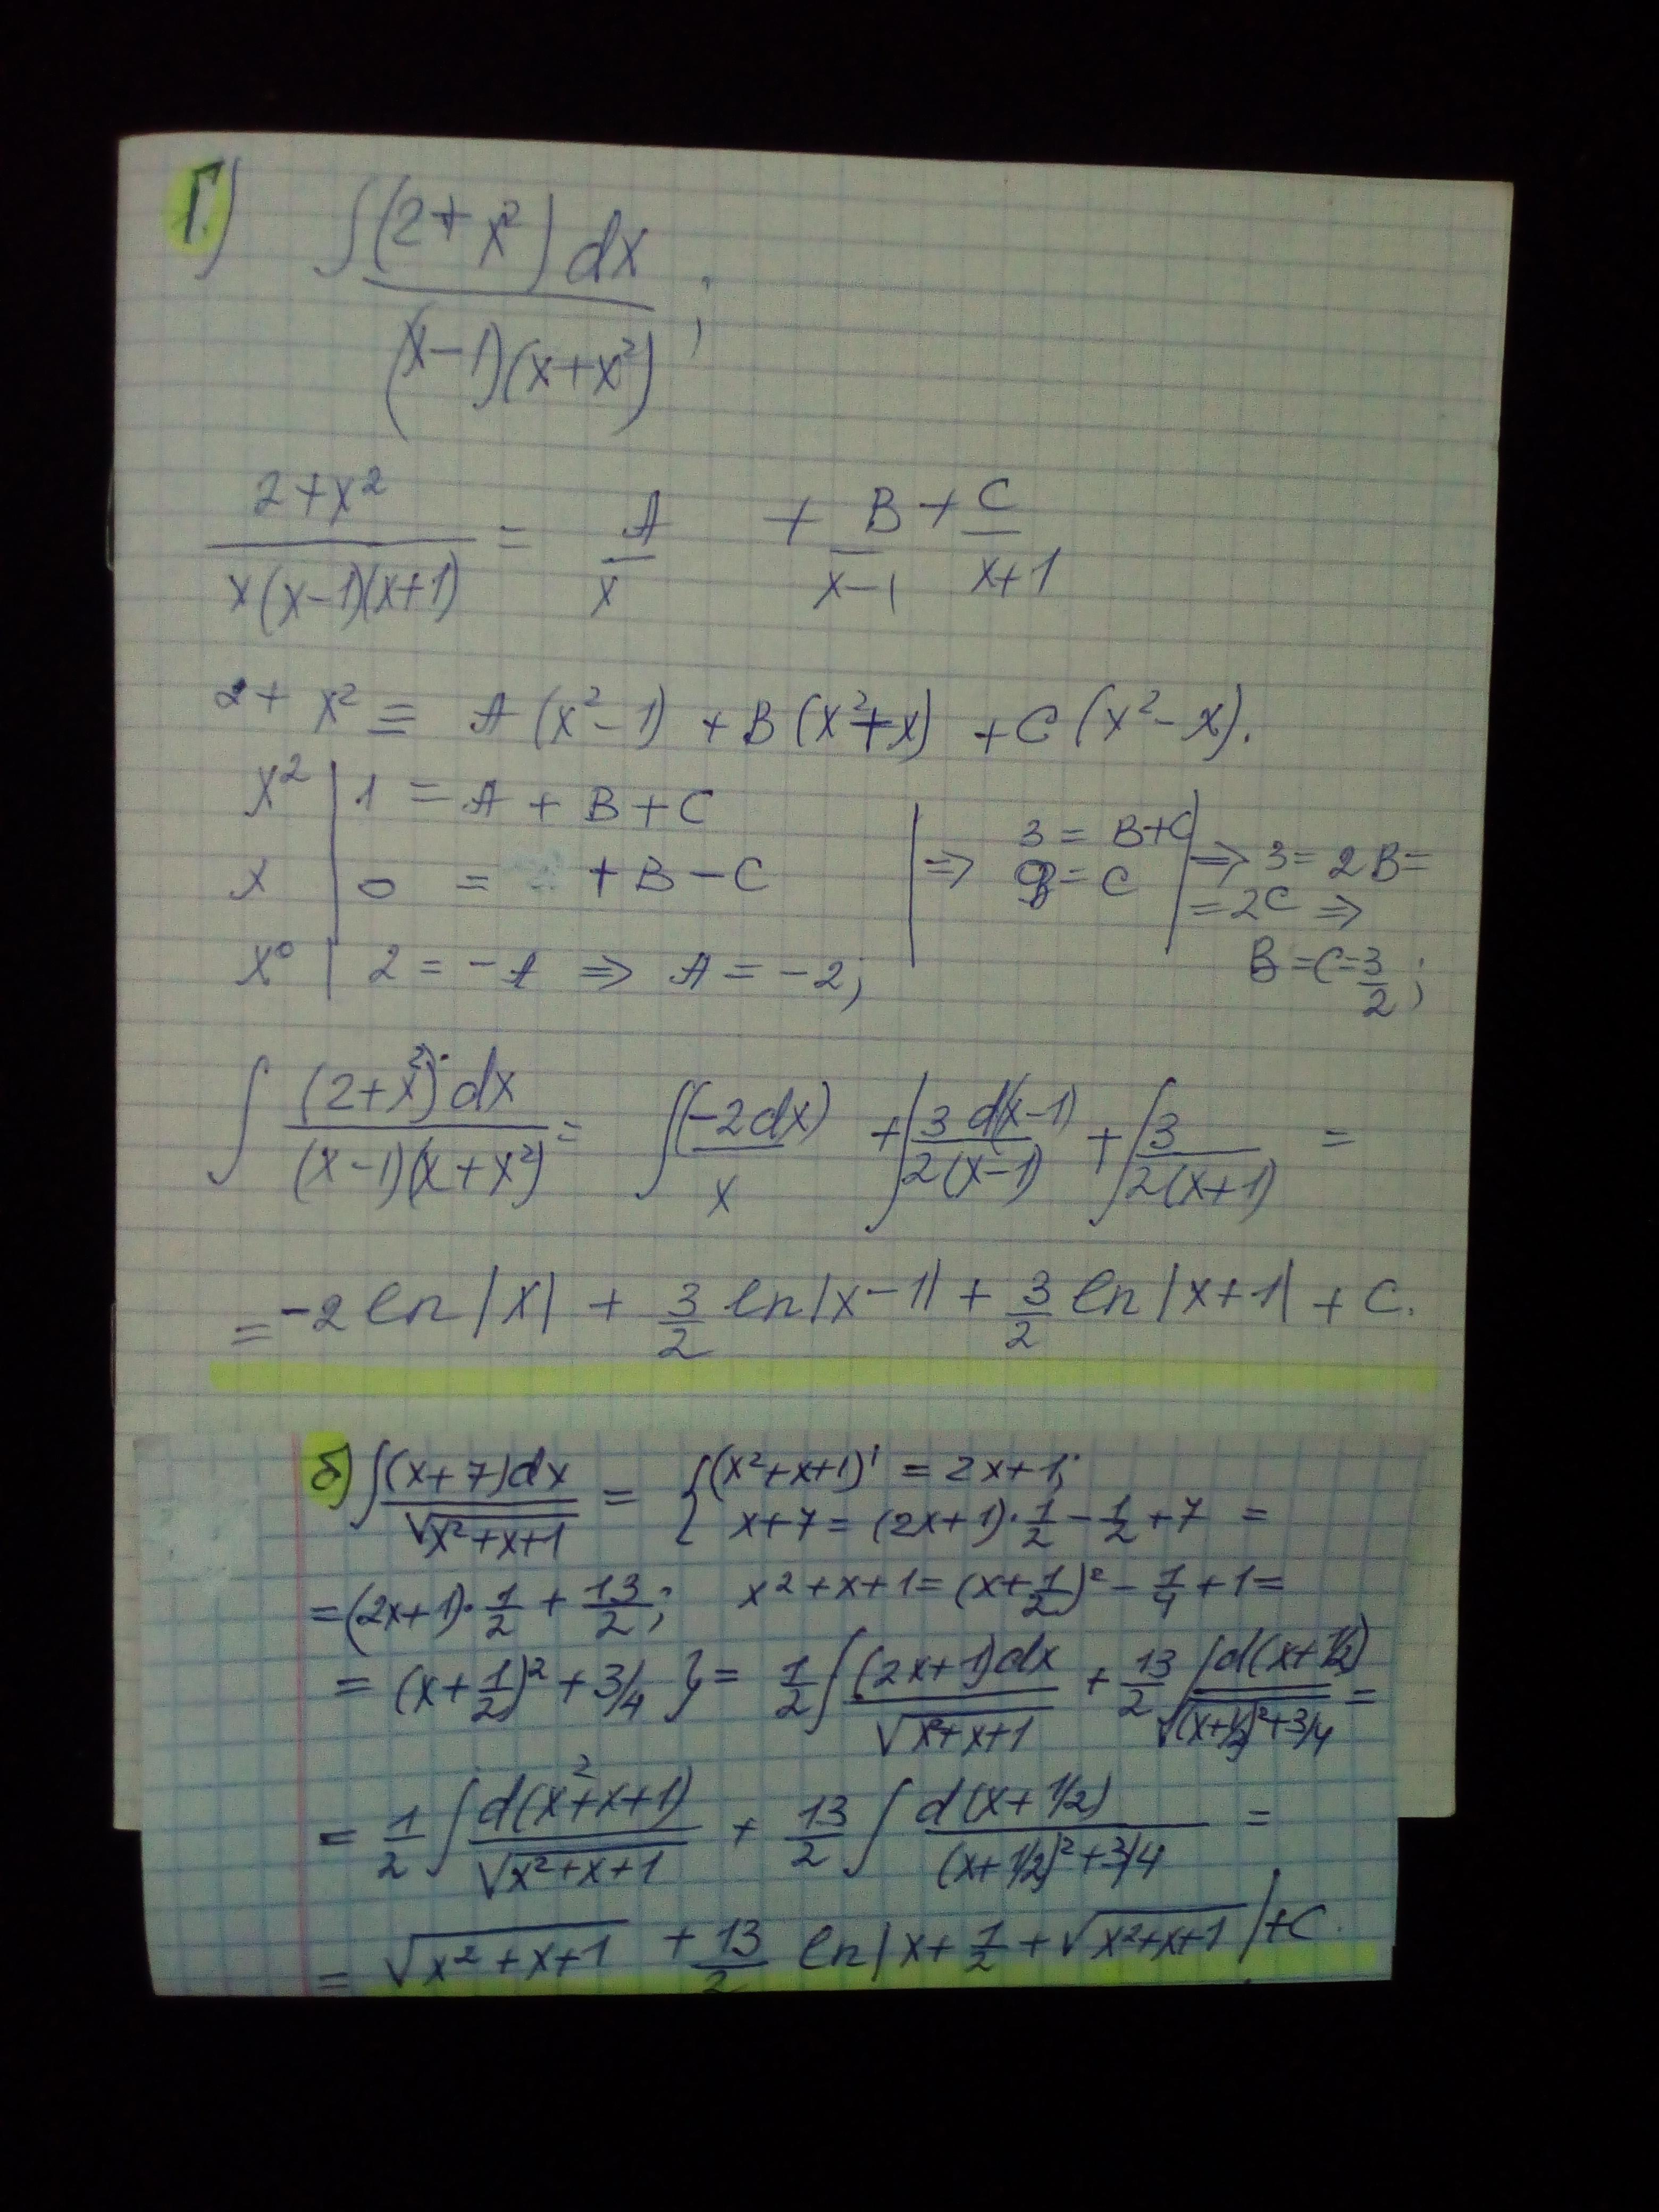 г.) ∫ (2+x²)dx / (x-1)(x+x²) ;
2+x² / x(x-1)(x+1) = A/x + B/x-1 + C/x+1
2+x² ≡ A(x²-1) + B(x²+x) + C(x²-x).
x² | 1 = A+B+C | ⇒ 3 = B+C | ⇒ 3 = 2B =
x | 0 = +B-C | B = C | = 2C ⇒
x⁰ | 2 = -A ⇒ A = -2; B = C = 3/2 ;
∫ (2+x²)·dx / (x-1)(x+x²) = ∫ (-2dx) / x + ∫ 3 d(x-1) / 2(x-1) + ∫ 3 / 2(x+1) =
= -2 ln|x| + 3/2 ln|x-1| + 3/2 ln|x+1| + C.
б) ∫ (x+7)dx / √x²+x+1 = { (x²+x+1)' = 2x+1;
x+7 = (2x+1)·1/2 - 1/2 + 7 =
= (2x+1)·1/2 + 13/2 ; x²+x+1 = (x+1/2)² - 1/4 + 1 =
= (x+1/2)² + 3/4 } = 1/2 ∫ (2x+1)dx / √x²+x+1 + 13/2 ∫ d(x+1/2) / √(x+1/2)²+3/4 =
= 1/2 ∫ d(x²+x+1) / √x²+x+1 + 13/2 ∫ d(x+1/2) / (x+1/2)²+3/4 =
= √x²+x+1 + 13/2 ln|x+1/2+√x²+x+1| + C.